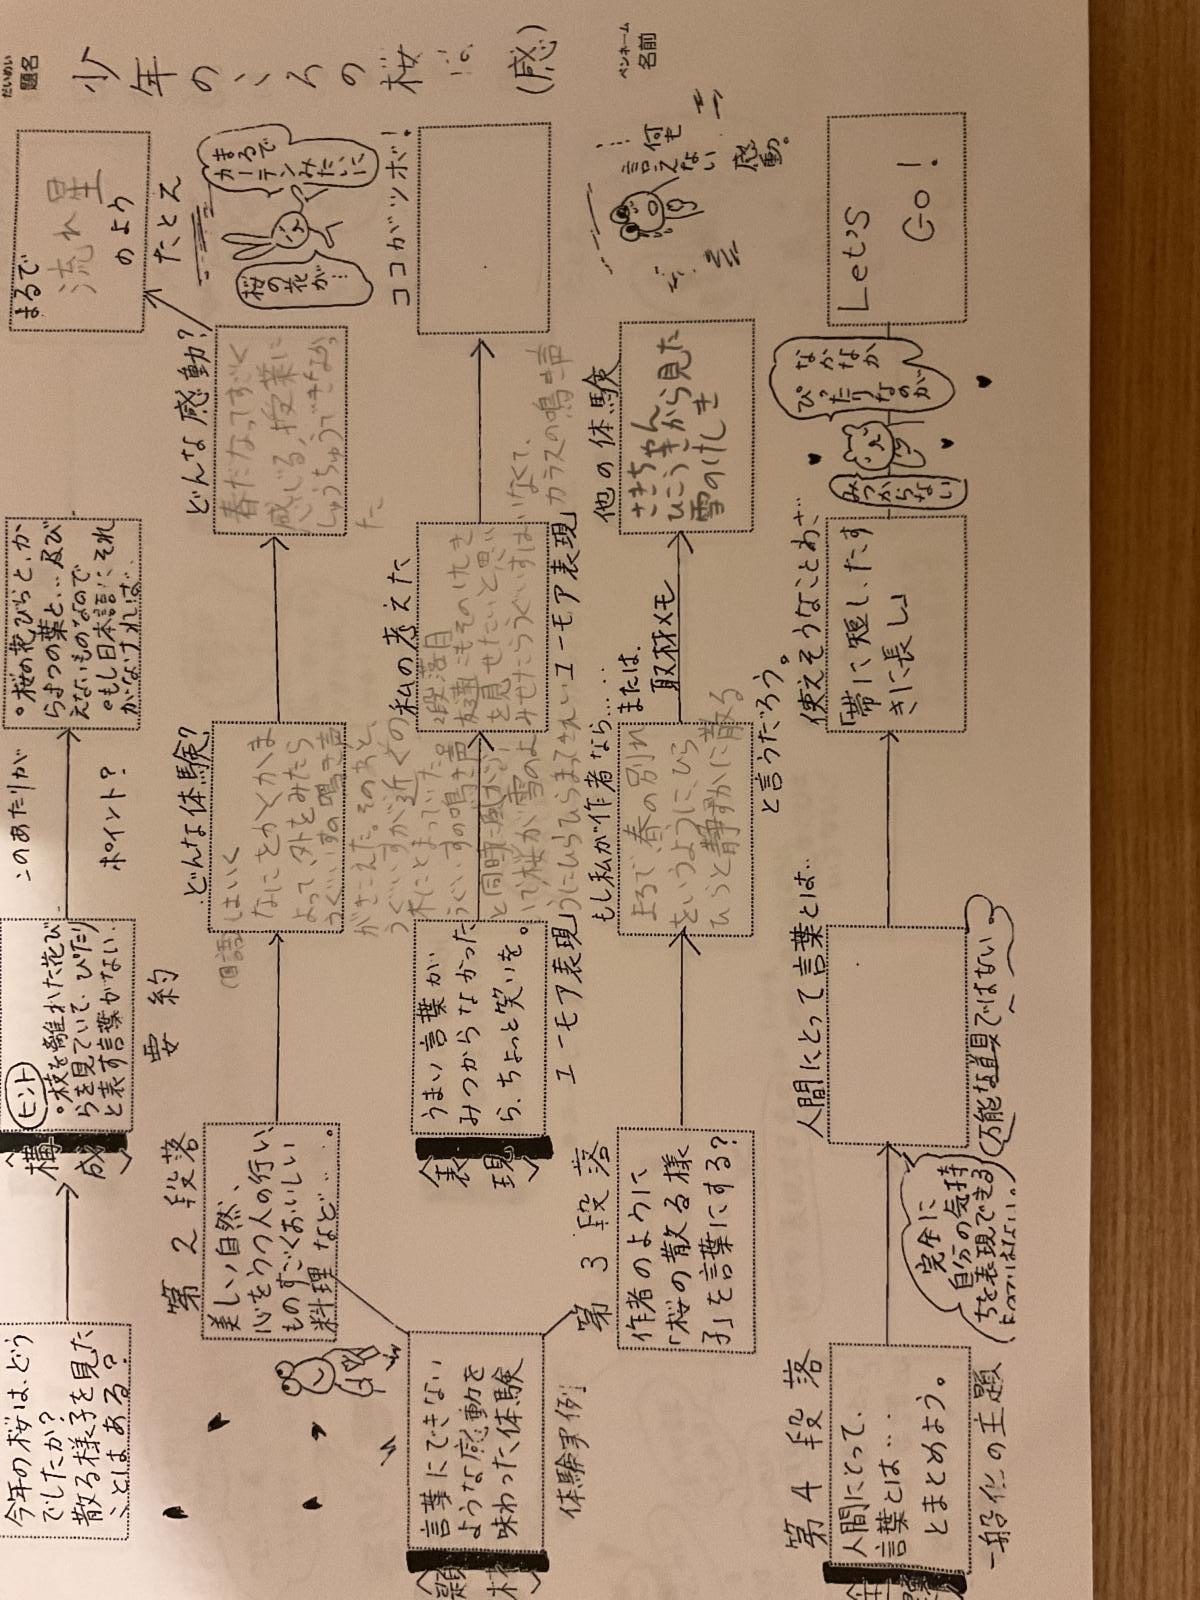 だいめい
題名
少年のころの桜
(感)
ペンネーム
名前
今年の桜は、どう
でしたか?
散る様子を見た
ことはある?
〈構成〉
ヒント
。枝を離れた花び
らを見ていて、ぴたり
と表す言葉がない。
このあたりが
ポイント?
。桜の花びらと、か
らまつの葉と…及び
えないものなので
。もし日本語にそれ
がなければ…
まるで
流れ星
のよう
たとえ
第2段落
要約
美しい自然、
心をうつ人の行い
ものすごくおいしい
料理など…。
どんな体験?
国語
はいく
なにをかくかま
よって、外をみたら
うぐいすの鳴き声
がきこえた。そのあと、
うぐいすが近くの
木にとまっていた。
うぐいすの鳴き声
と同時に風がふ
いて桜が雪のよ
うにひらひらまってきれい
どんな感動?
春だなってすごく
感じる、授業に
しゅうちゅうできなかっ
た
桜の花が…
まるで
カーテンみたいに
言葉にできない
ような感動を
味わった体験
体験実例
〈表現〉
うまい言葉が
みつからなかった
ら、ちょっと笑いを。
ユーモア表現
私の考えた
2段落目
友達にもそのけしき
を見せたいと思
いなくて、
カラスの鳴き声
ユーモア表現
ココがツボ!
第3段落
作者のように
「桜の散る様
子」を言葉にする?
もし私が作者なら…
まるで、春の別れ
をいうように、ひら
ひらと静かに散る
と言うだろう。
または、
取材メモ
他の体験
ひこうきから見た
雪のけしき
……何も
言えない
感動。
第4段落
人間にとって、
言葉とは…
とまとめよう。
一般化の主題
完全に
自分の気持
ちを表現できる
万能な道具ではない
人間にとって言葉とは…
使えそうなことわざ
「帯に短し、たす
きに長し」
なかなか
ぴったり
なのが
みつからない
Let's
Go!